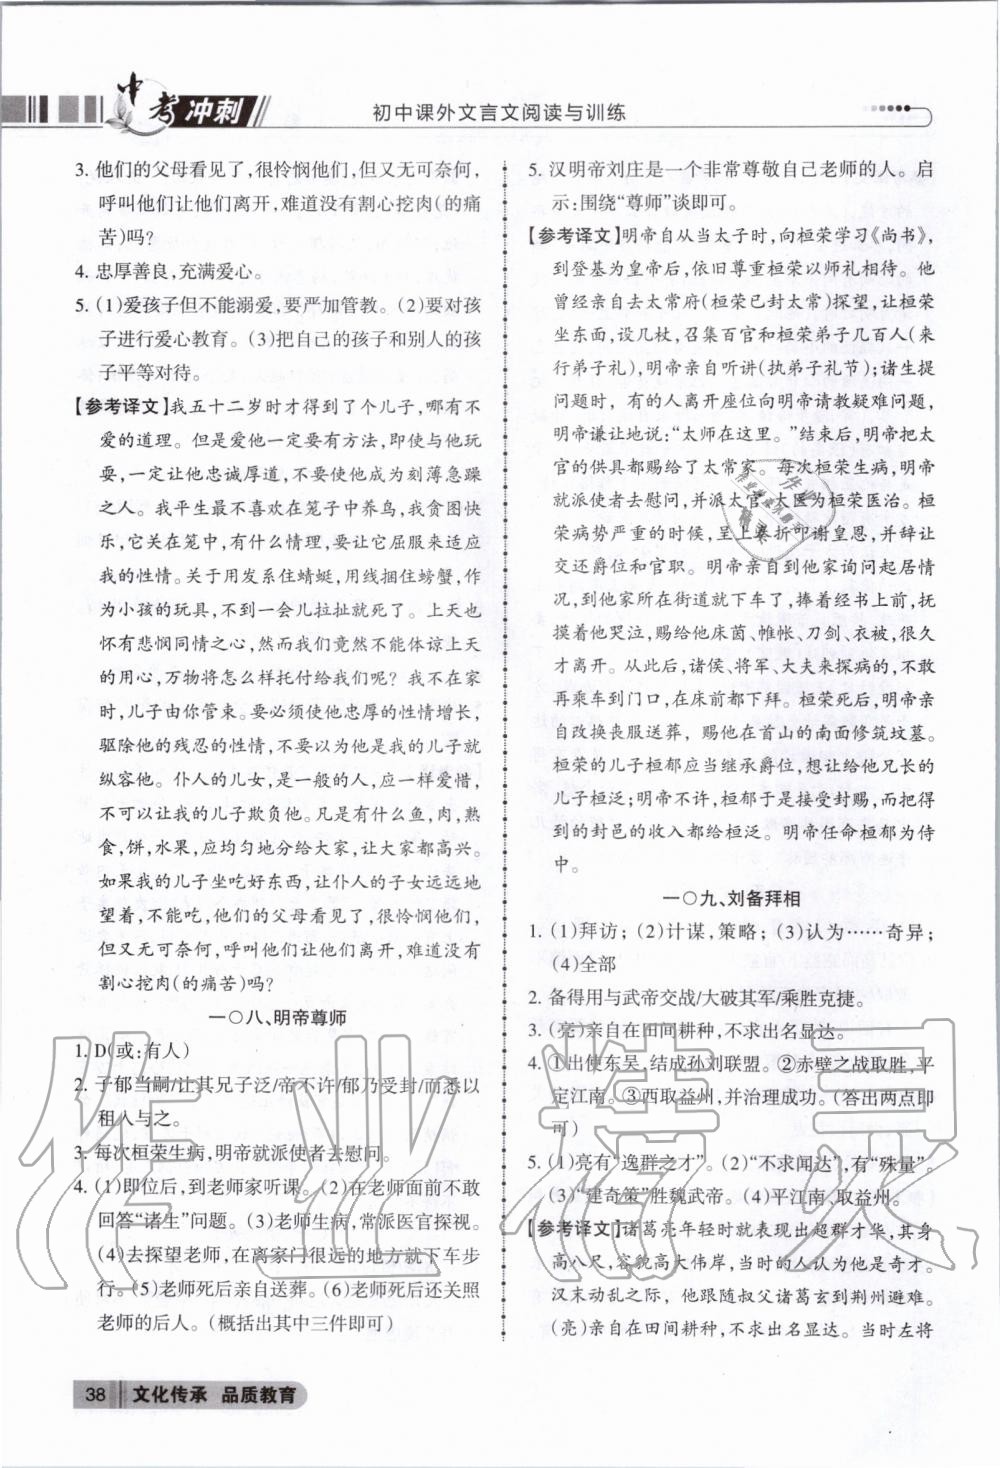 中考冲刺
初中课外文言文阅读与训练
3. 他们的父母看见了,很怜悯他们,但又无可奈何,
呼叫他们让他们离开,难道没有割心挖肉(的痛
苦)吗?
4. 忠厚善良,充满爱心。
5. (1)爱孩子但不能溺爱,要严加管教。(2)要对孩
子进行爱心教育。(3)把自己的孩子和别人的孩
子平等对待。
【参考译文】我五十二岁时才得到了个儿子,哪有不
爱的道理。但是爱他一定要有方法,即使与他玩
耍,一定让他忠诚厚道,不要使他成为刻薄急躁
之人。我平生最不喜欢在笼子中养鸟,我贪图快
乐,它关在笼中,有什么情理,要让它屈服来适应
我的性情。关于用发系住蜻蜓,用线捆住螃蟹,作
为小孩的玩具,不到一会儿拉扯就死了。上天也
怀有悲悯同情之心,然而我们竟然不能体谅上天
的用心,万物将怎么样托付给我们呢?我不在家
时,儿子由你管束。要必须使他忠厚的性情增长,
驱除他的残忍的性情,不要以为他是我的儿子就
纵容他。仆人的儿女,是一般的人,应一样爱惜,
不可以让我的儿子欺负他。凡是有什么鱼,肉,熟
食,饼,水果,应均匀地分给大家,让大家都高兴。
如果我的儿子坐吃好东西,让仆人的子女远远地
望着,不能吃,他们的父母看见了,很怜悯他们,
但又无可奈何,呼叫他们让他们离开,难道没有
割心挖肉(的痛苦)吗?
一〇八、明帝尊师
1. D(或:有人)
2. 子郁当嗣/让其兄子泛/帝不许/郁乃受封/而悉以
租入与之。
3. 每次桓荣生病,明帝就派使者去慰问。
4. (1)即位后,到老师家听课。(2)在老师面前不敢
回答“诸生”问题。(3)老师生病,常派医官探视。
(4)去探望老师,在离家门很远的地方就下车步
行。(5)老师死后亲自送葬。(6)老师死后还关照
老师的后人。(概括出其中三件即可)
5. 汉明帝刘庄是一个非常尊敬自己老师的人。启
示:围绕“尊师”谈即可。
【参考译文】明帝自从当太子时,向桓荣学习《尚书》,
到登基为皇帝后,依旧尊重桓荣以师礼相待。他
曾经亲自去太常府(桓荣已封太常)探望,让桓荣
坐东面,设几杖,召集百官和桓荣弟子几百人(来
行弟子礼),明帝亲自听讲(执弟子礼节);诸生提
问题时,有的人离开座位向明帝请教疑难问题,
明帝谦让地说:“太师在这里。”结束后,明帝把太
官的供具都赐给了太常家。每次桓荣生病,明帝
就派使者去慰问,并派太官、太医为桓荣医治。桓
荣病势严重的时候,呈上奏折叩谢皇恩,并辞让
交还爵位和官职。明帝亲自到他家询问起居情
况,到他家所在街道就下车了,捧着经书上前,抚
摸着他哭泣,赐给他床茵、帷帐、刀剑、衣被,很久
才离开。从此后,诸侯、将军、大夫来探病的,不敢
再乘车到门口,在床前都下拜。桓荣死后,明帝亲
自改换丧服送葬,赐他在首山的南面修筑坟墓。
桓荣的儿子桓郁应当继承爵位,想让给他兄长的
儿子桓泛;明帝不许,桓郁于是接受封赐,而把得
到的封邑的收入都给桓泛。明帝任命桓郁为侍
中。
一〇九、刘备拜相
1. (1)拜访;(2)计谋,策略;(3)认为……奇异;
(4)全部
2. 备得用与武帝交战/大破其军/乘胜克捷。
3. (亮)亲自在田间耕种,不求出名显达。
4. ①出使东吴,结成孙刘联盟。②赤壁之战取胜,平
定江南。③西取益州,并治理成功。(答出两点即
可)
5. (1)亮有“逸群之才”。(2)“不求闻达”,有“殊量”。
(3)“建奇策”胜魏武帝。(4)平江南、取益州。
【参考译文】诸葛亮年轻时就表现出超群才华,其身
高八尺,容貌高大伟岸,当时的人认为他是奇才。
汉末动乱之际,他跟随叔父诸葛玄到荆州避难。
(亮)亲自在田间耕种,不求出名显达。当时左将
38 文化传承 品质教育